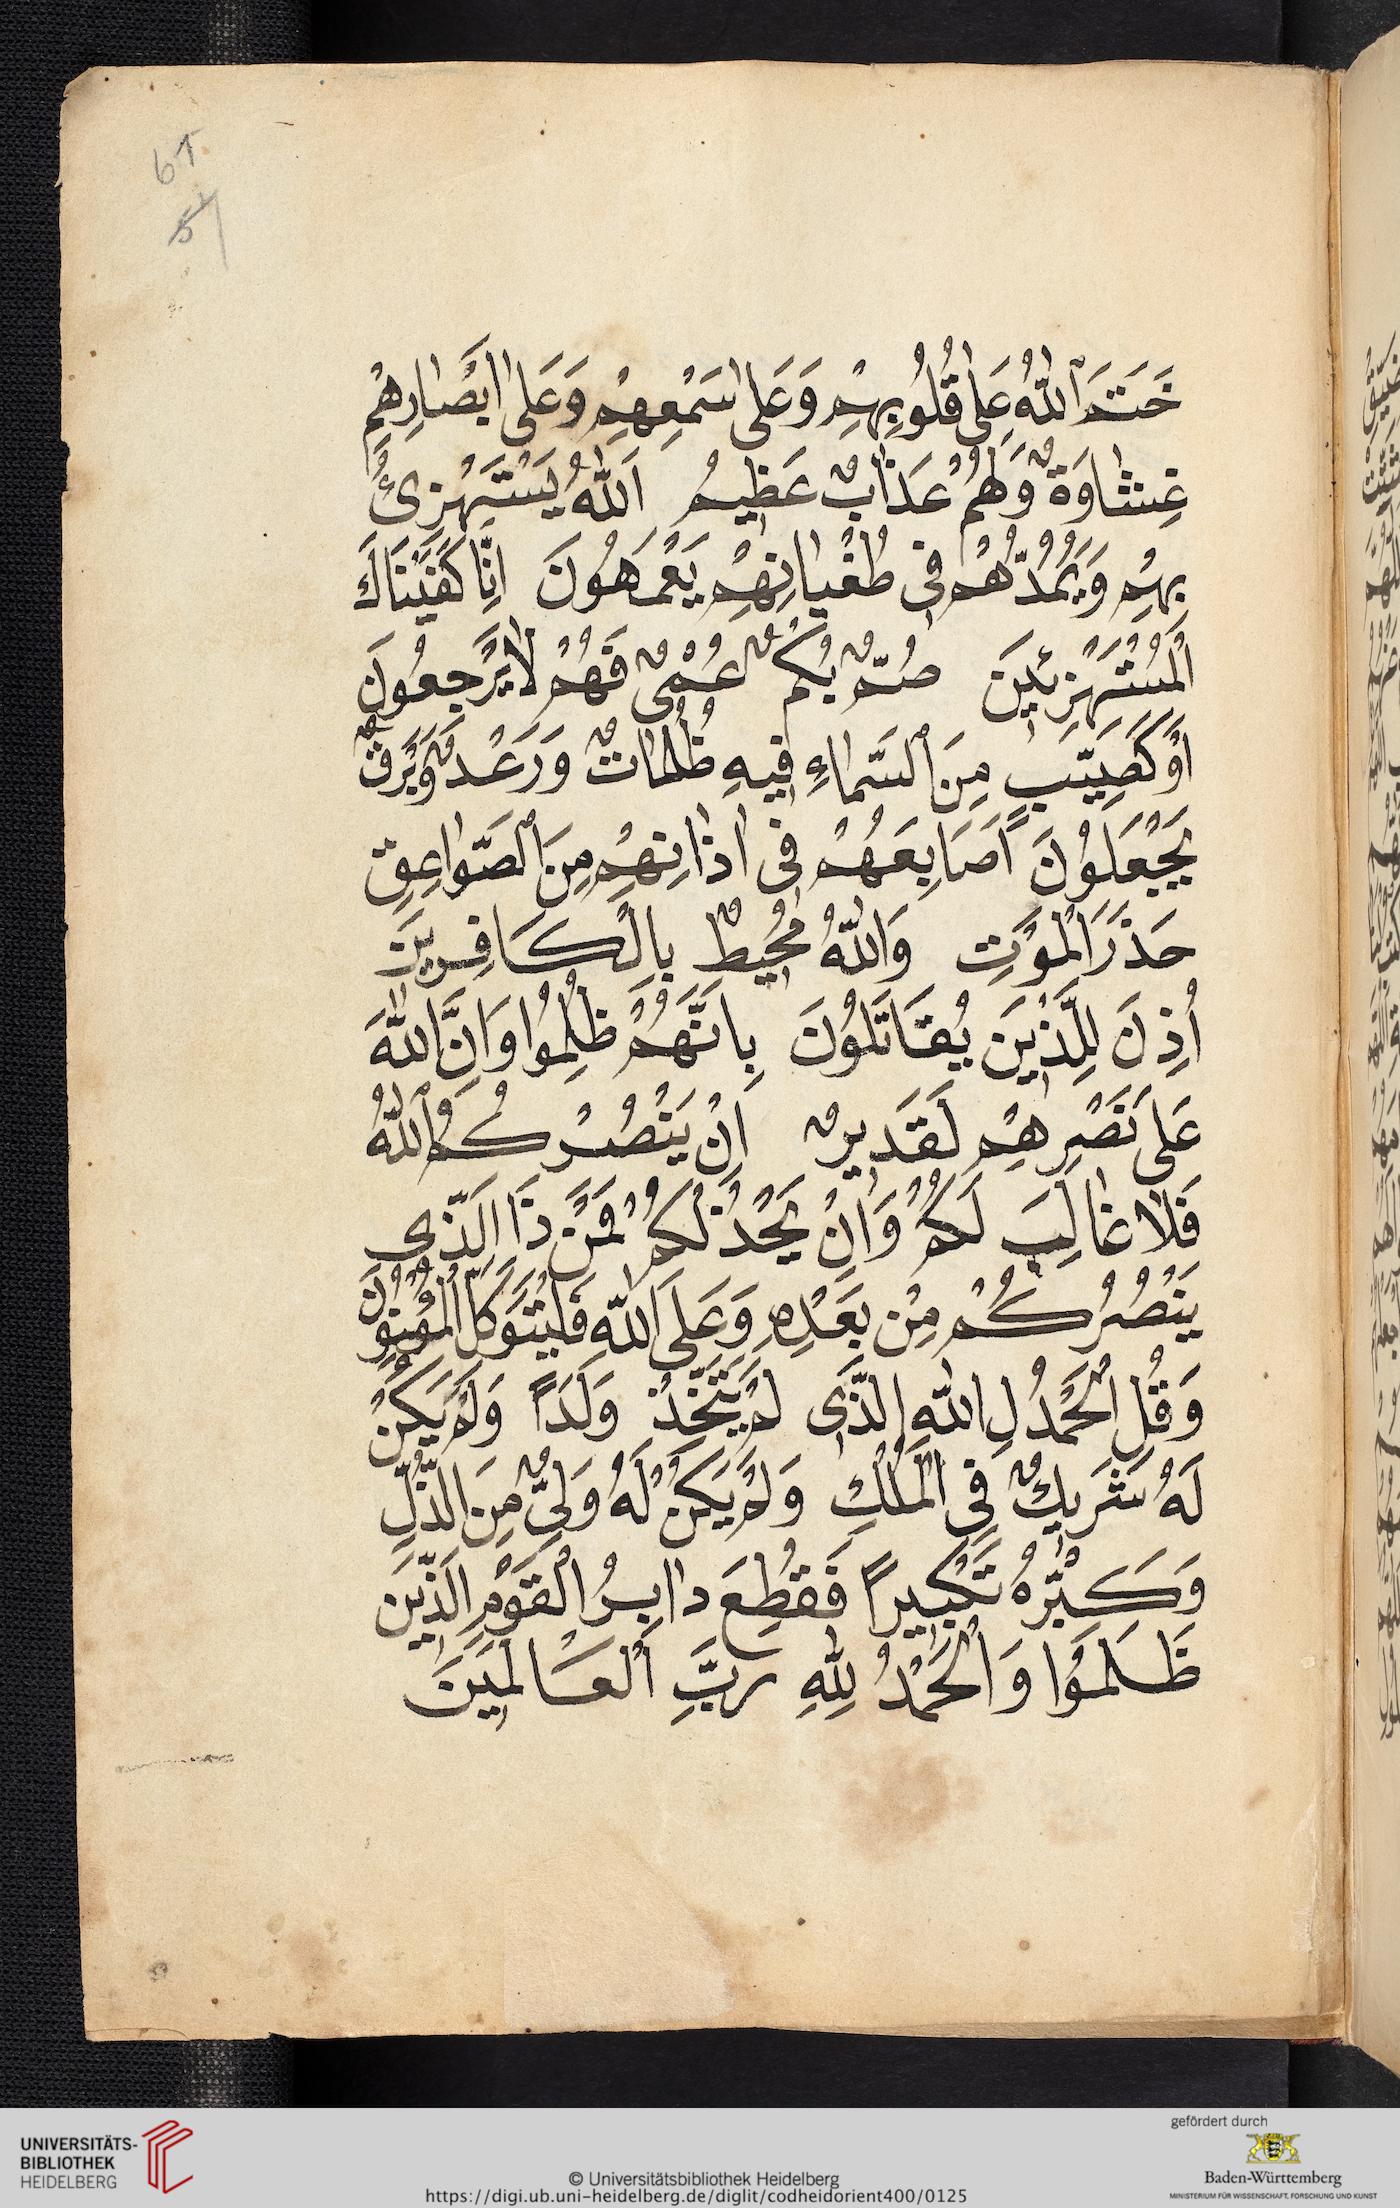 61
51
خَتَمَ ٱللّٰهُ عَلٰى قُلُوبِهِمْ وَعَلٰى سَمْعِهِمْ وَعَلٰى اَبْصٰارِهِمْ
غِشٰاوَةٌ وَلَهُمْ عَذٰابٌ عَظِيمُ اَللّٰهُ يَسْتَهْزِئُ
بِهِمْ وَيَمُدُّهُمْ فِى طُغْيٰانِهِمْ يَعْمَهُونَ اِنَّا كَفَيْنَاكَ
الْمُسْتَهْزِئِينَ صُمٌّ بُكْمٌ عُمْىٌ فَهُمْ لٰا يَرْجِعُونَ
اَوْ كَصَيِّبٍ مِنَ ٱلسَّمٰاءِ فِيهِ ظُلُمٰاتٌ وَرَعْدٌ وَبَرْقٌ
يَجْعَلُونَ اَصَابِعَهُمْ فِى اٰذٰانِهِمْ مِنَ ٱلصَّوٰاعِقِ
حَذَرَ الْمَوْتِ وَاللّٰهُ مُحِيطٌ بِالْكَافِرِينَ
أُذِنَ لِلَّذِينَ يُقَاتَلُونَ بِاَنَّهُمْ ظُلِمُوا وَاِنَّ اللّٰهَ
عَلٰى نَصْرِهِمْ لَقَدِيرٌ اِنْ يَنْصُرْكُمُ ٱللّٰهُ
فَلٰا غٰالِبَ لَكُمْ وَاِنْ يَخْذُلْكُمْ فَمَنْ ذَا الَّذِى
يَنْصُرُكُمْ مِنْ بَعْدِهِ وَعَلَى اللّٰهِ فَلْيَتَوَكَّلِ الْمُؤْمِنُونَ
وَقُلِ الْحَمْدُ لِ اللّٰهِ الَّذِى لَمْ يَتَّخِذْ وَلَدًا وَلَمْ يَكُنْ
لَهُ شَرِيكٌ فِى الْمُلْكِ وَلَمْ يَكُنْ لَهُ وَلِىٌّ مِنَ الذُّلِّ
وَكَبِّرْهُ تَكْبِيرًا فَقُطِعَ دٰابِرُ الْقَوْمِ الَّذِينَ
ظَلَمُوا وَالْحَمْدُ لِلّٰهِ رَبِّ الْعَالَمِينَ
UNIVERSITÄTS-
BIBLIOTHEK
HEIDELBERG
© Universitätsbibliothek Heidelberg
https://digi.ub.uni-heidelberg.de/diglit/codheidorient400/0125
gefördert durch
Baden-Württemberg
MINISTERIUM FÜR WISSENSCHAFT, FORSCHUNG UND KUNST